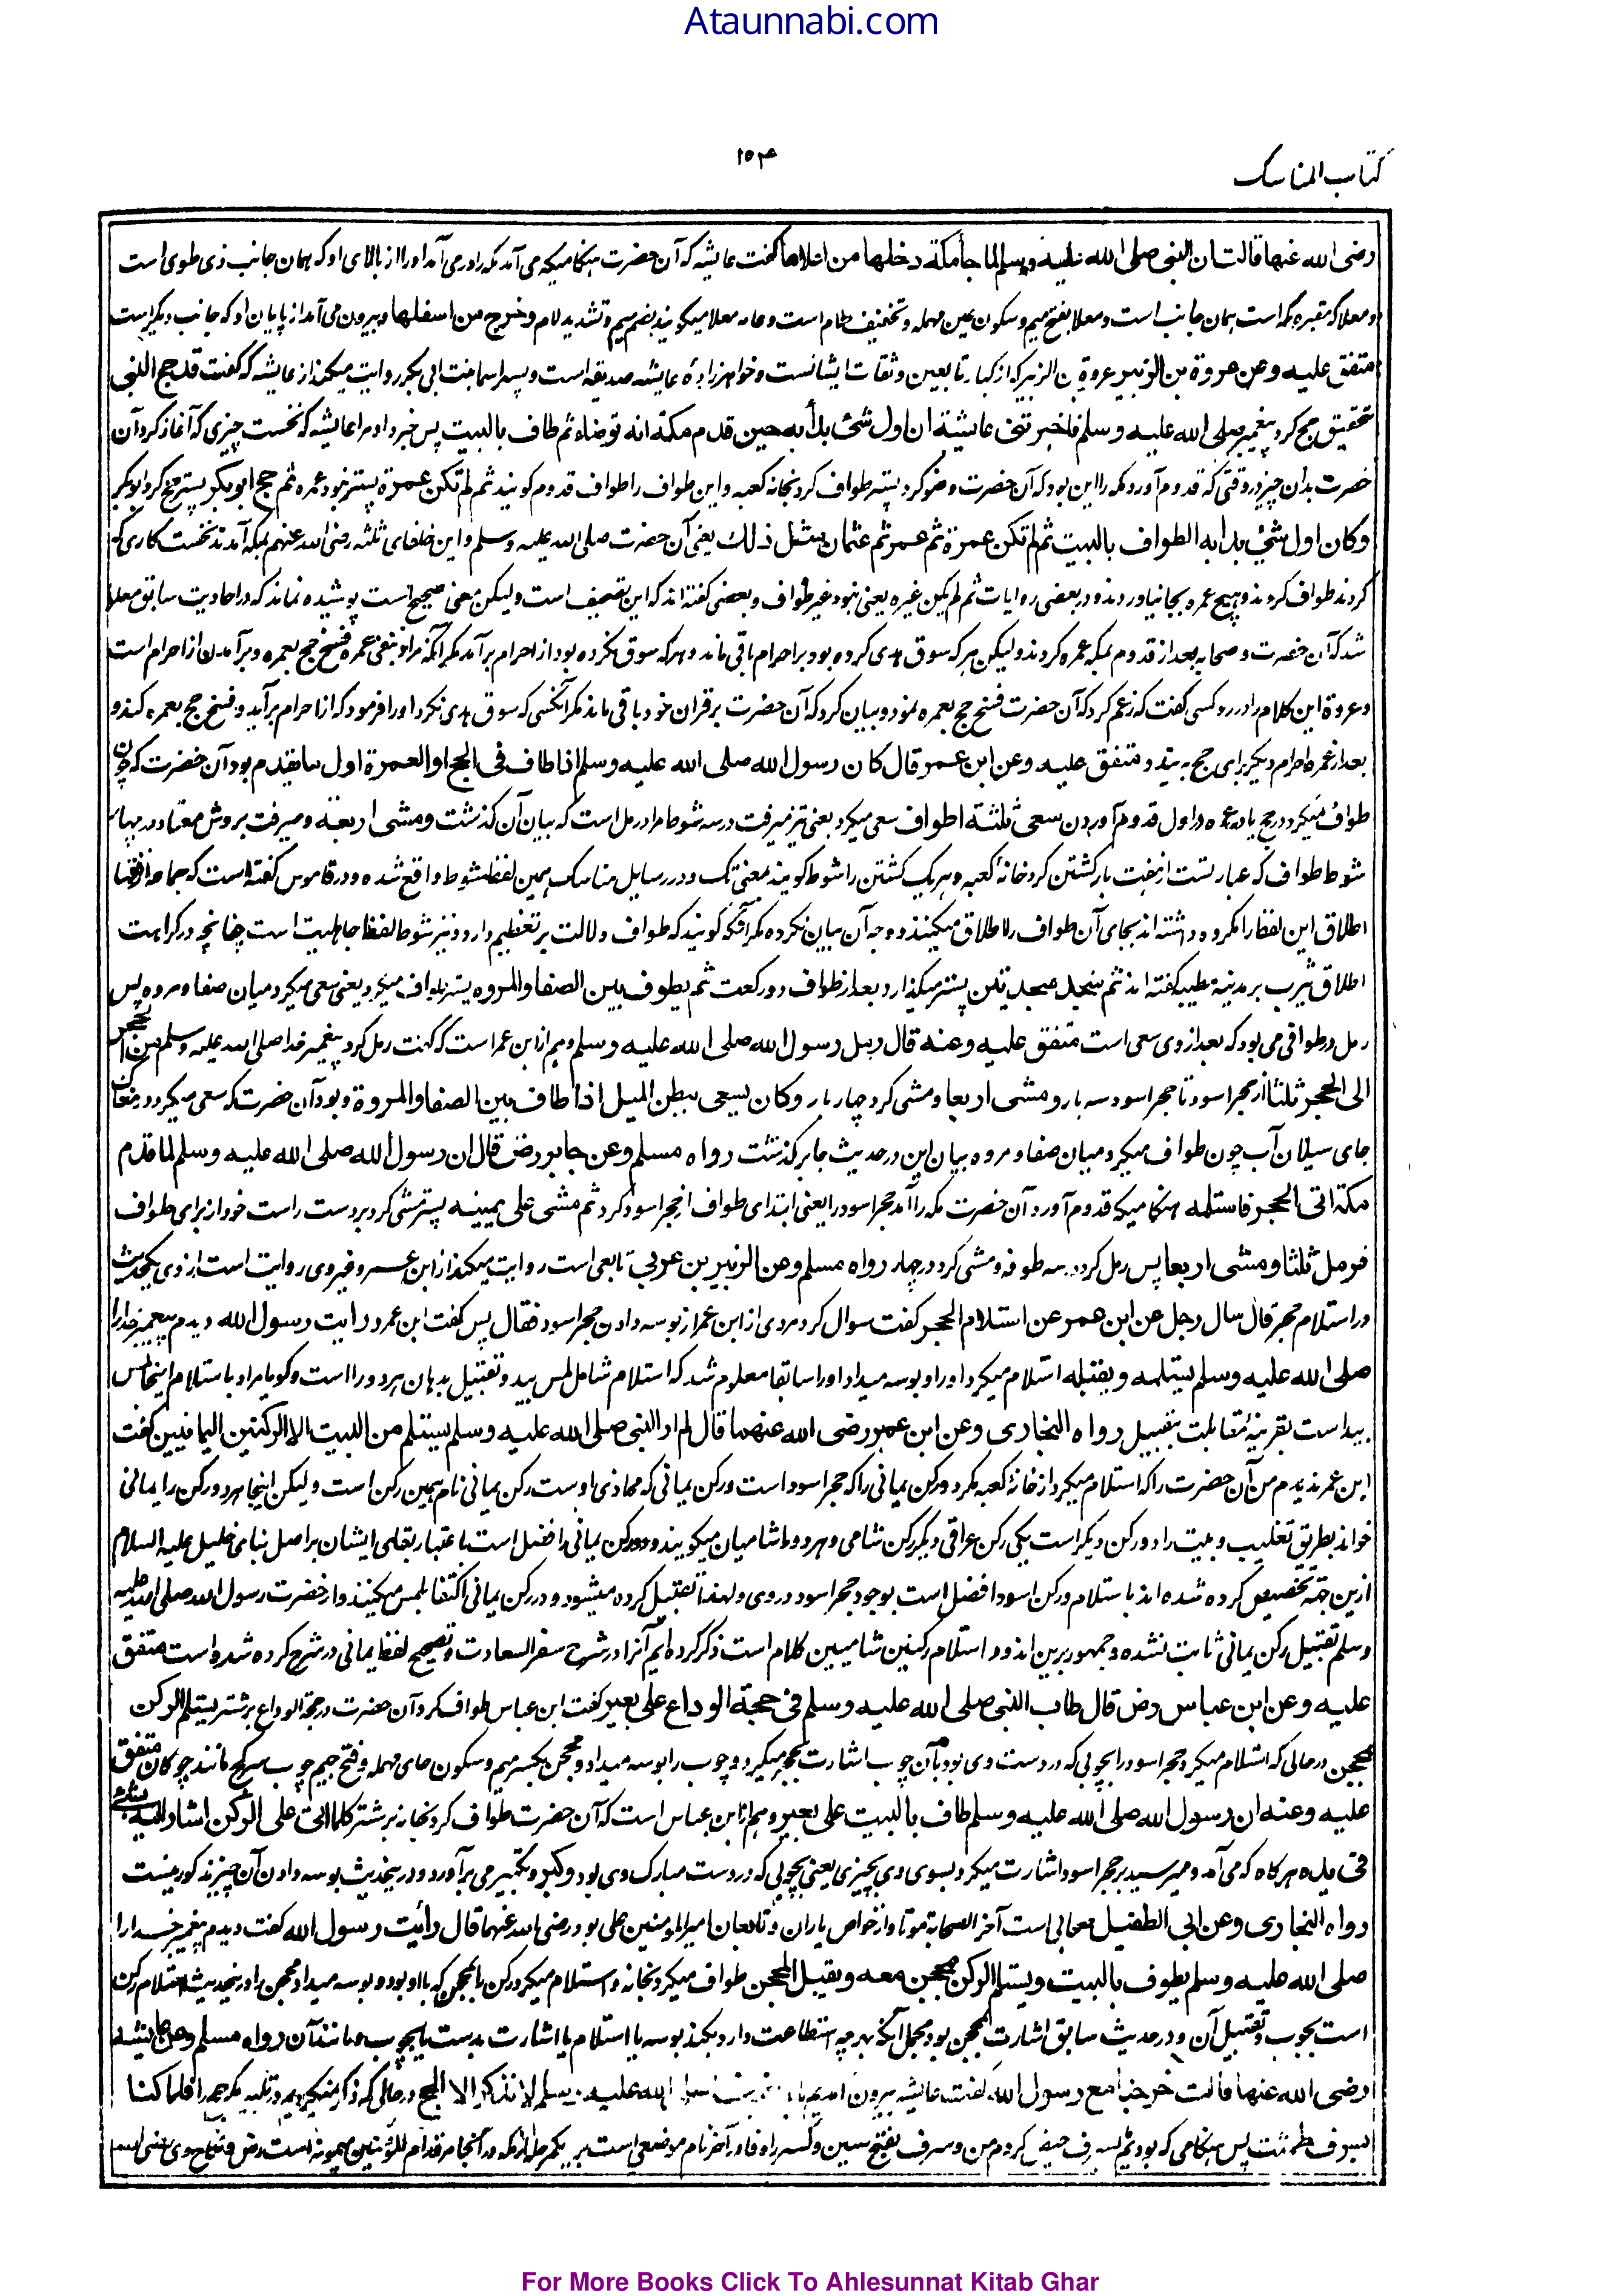 Ataunnabi.com
کتاب المناسک
۱۵۴
رضی الله عنها قالت ان النبی صلی الله علیه وسلم لما جاء مکة دخلها من اعلاها گفت عایشه که آن حضرت هنگامیکه می آمد مکه را در می آمد او را از بالای او که همان جانب ذی طوی است
و معلا که مقبره مکه است همان جانب است و معلا بفتح میم و سکون عین مهمله و تخفیف لام است و عامه معلا میگویند بضم میم و تشدید لام و خرج من اسفلها و بیرون می آمد از پایان او که جانب دیگر است
متفق علیه وعن عروة بن الزبیر عروة بن الزبیر که از کبار تابعین و ثقات ایشانست و خواهرزادهٔ عایشه صدیقه است و پسر اسما بنت ابی بکر روایت میکند از عایشه که گفت قد حج النبی
تحقیق حج کرد پیغمبر صلی الله علیه وسلم فاخبرتنی عایشة ان اول شئ بدأ به حین قدم مکة انه توضاء ثم طاف بالبیت پس خبر داد مرا عایشه که نخست چیزی که آغاز کرد آن
حضرت بدان چیز در وقتی که قدوم آورد مکه را این بود که آن حضرت وضو کرد پستر طواف کرد بخانه کعبه و این طواف را طواف قدوم گویند ثم لم تکن عمرة پستر نبود عمره ثم حج ابو بکر پستر حج کرد ابو بکر
وکان اول شئ بدأ به الطواف بالبیت ثم لم تکن عمرة ثم عمر ثم عثمان مثل ذلک یعنی آن حضرت صلی الله علیه وسلم و این خلفای ثلثه رضی الله عنهم بمکه آمدند نخست کاری که
کردند طواف کردند و هیچ عمره بجا نیاوردند و در بعضی روایات ثم لم یکن غیره یعنی نبود غیر طواف و بعضی گفته اند که این تصحیف است ولیکن معنی صحیح است پوشیده نماند که در احادیث سابق معلوم
شد که آن حضرت و صحابه بعد از قدوم بمکه عمره کردند ولیکن هر که سوق هدی کرده بود بر احرام باقی ماند و هر که سوق نکرده بود از احرام برآمد مگر آنکه مراد بنفی عمره فسخ حج بعمره و برآمدن از احرام است
و عروة این کلام را در رد کسی گفت که زعم کرد که آن حضرت فسخ حج بعمره نمود و بیان کرد که آن حضرت بر قران خود باقی ماند مگر آنکسی که سوق هدی نکرد او را فرمود که از احرام برآید و فسخ حج بعمره کند و
بعد از عمره احرام دیگر برای حج به بندد متفق علیه وعن ابن عمر قال کان رسول الله صلی الله علیه وسلم اذا طاف فی الحج او العمرة اول ما یقدم بود آن حضرت که چون
طواف میکرد در حج یا در عمره در اول قدوم آوردن سعی ثلثة اطواف سعی میکرد یعنی تیز میرفت در سه شوط مراد رمل است که بیان آن گذشت ومشی اربعة و میرفت بروش معتاد در چهار
شوط طواف که عبارتست از هفت بار گشتن گرد خانهٔ کعبه و هر یک گشتن را شوط گویند بمعنی تک و در رسایل مناسک همین لفظ شوط واقع شده و در قاموس گفته است که جماعه از فقها
اطلاق این لفظ را مکروه داشته اند بجای آن طواف را اطلاق میکنند و وجه آن بیان نکرده مگر آنکه گویند که طواف دلالت بر تعظیم دارد و نیز شوط لفظ جاهلیت است چنانچه در کراهت
اطلاق یثرب بر مدینهٔ طیبه گفته اند ثم سجد سجدتین پستر میگذارد بعد از طواف دو رکعت ثم یطوف بین الصفا والمروه پستر طواف میکرد یعنی سعی میکرد میان صفا و مروه پس
رمل در طوافی می بود که بعد از وی سعی است متفق علیه وعنه قال رمل رسول الله صلی الله علیه وسلم و هم از ابن عمر است که گفت رمل کرد پیغمبر خدا صلی الله علیه وسلم من الحجر
الی الحجر ثلثا از حجر اسود تا حجر اسود سه بار ومشی اربعا و مشی کرد چهار بار وکان یسعی ببطن المسیل اذا طاف بین الصفا والمروة و بود آن حضرت که سعی میکرد در
جای سیلان آب چون طواف میکرد میان صفا و مروه بیان این در حدیث جابر گذشت رواه مسلم وعن جابر رض قال ان رسول الله صلی الله علیه وسلم لما قدم
مکة اتی الحجر فاستلمه هنگامیکه قدوم آورد آن حضرت مکه را آمد حجر اسود را یعنی ابتدای طواف از حجر اسود کرد ثم مشی علی یمینه پستر مشی کرد بر دست راست خود از برای طواف
فرمل ثلثا ومشی اربعا پس رمل کرد در سه طوفه و مشی کرد در چهار رواه مسلم وعن الزبیر بن عربی تابعی است روایت میکند از ابن عمر و غیر وی روایت است از وی یکحدیث
در استلام حجر قال سال رجل عن ابن عمر عن استلام الحجر گفت سوال کرد مردی از ابن عمر از بوسه دادن حجر اسود فقال پس گفت ابن عمر رایت رسول الله دیدم پیغمبر خدا را
صلی الله علیه وسلم یستلمه ویقبله استلام میکرد او را و بوسه میداد او را سابقا معلوم شد که استلام شامل لمس بید و تقبیل بدهان هر دو را است و گویا مراد باستلام اینجا لمس
بید است بقرینهٔ مقابلت بتقبیل رواه البخاری وعن ابن عمر رضی الله عنهما قال لم ار النبی صلی الله علیه وسلم یستلم من البیت الا الرکنین الیمانیین گفت
ابن عمر ندیدم من آن حضرت را که استلام میکرد از خانهٔ کعبه مگر دو رکن یمانی را که حجر اسود است و رکن یمانی که محاذی اوست رکن یمانی نام همین رکن است ولیکن اینجا هر دو رکن را یمانی
خواند بطریق تغلیب و بیت را دو رکن دیگر است یکی رکن عراقی دیگر رکن شامی و هر دو را شامیان میگویند و دو رکن یمانی را فضل است باعتبار بقای ایشان بر اصل بنای خلیل علیه السلام
ازین جهة تخصیص کرده شده اند باستلام و رکن اسود افضل است بوجود حجر اسود در وی ولهذا تقبیل کرده میشود و در رکن یمانی اکتفا بلمس میکنند و از حضرت رسول الله صلی الله علیه
وسلم تقبیل رکن یمانی ثابت نشده و جمهور برین اند و در استلام رکنین شامیین کلام است ذکر کرده ایم آنرا در شرح سفر السعادت و تصحیح لفظ یمانی در شرح کرده شده است متفق
علیه وعن ابن عباس رض قال طاف النبی صلی الله علیه وسلم فی حجة الوداع علی بعیر گفت ابن عباس طواف کرد آن حضرت در حجة الوداع بر شتر یستلم الرکن
بمحجن در حالی که استلام میکرد حجر اسود را بچوبی که در دست وی بود بآن چوب اشارت بحجر میکرد و چوب را بوسه میداد و محجن بکسر میم و سکون حای مهمله و فتح جیم چوب سر کج مانند چوگان متفق
علیه وعنه ان رسول الله صلی الله علیه وسلم طاف بالبیت علی بعیر و هم از ابن عباس است که آن حضرت طواف کرد بخانه بر شتر کلما اتی علی الرکن اشار الیه بشئ
فی یده هر گاه که می آمد و میرسید بر حجر اسود اشارت میکرد بسوی وی بچیزی یعنی بچوبی که در دست مبارک وی بود وکبر و تکبیر می برآورد و در ینحدیث بوسه دادن آن چیز مذکور نیست
رواه البخاری وعن ابی الطفیل صحابی است آخر الصحابة موتا و از خواص یاران و تابعان امیر المومنین علی بود رضی الله عنهما قال رأیت رسول الله گفت دیدم پیغمبر خدا را
صلی الله علیه وسلم یطوف بالبیت ویستلم الرکن بمحجن معه ویقبل المحجن طواف میکرد بخانه و استلام میکرد رکن را بمحجن که با او بود و بوسه میداد محجن را و در ینحدیث استلام رکن
است بچوب و تقبیل آن و در حدیث سابق اشارت بمحجن بود مجمل آنکه بهر چه استطاعت دارد بکند بوسه یا استلام یا اشارت بدست یا بچوب مانند آن رواه مسلم وعن عایشه
رضی الله عنها قالت خرجنا مع رسول الله گفت عایشه بیرون آمدیم صلی الله علیه وسلم لا نذکر الا الحج در حالی که ذکر نمیکردیم در تلبیه مگر حج را فلما کنا
بسرف طمثت پس هنگامی که بودیم بسرف حیض کردم من و سرف بفتح سین و کسر را و فا در آخر نام موضعی است بر یکمرحله از مکه در آنجا مرقد ام المؤمنین میمونه است
For More Books Click To Ahlesunnat Kitab Ghar